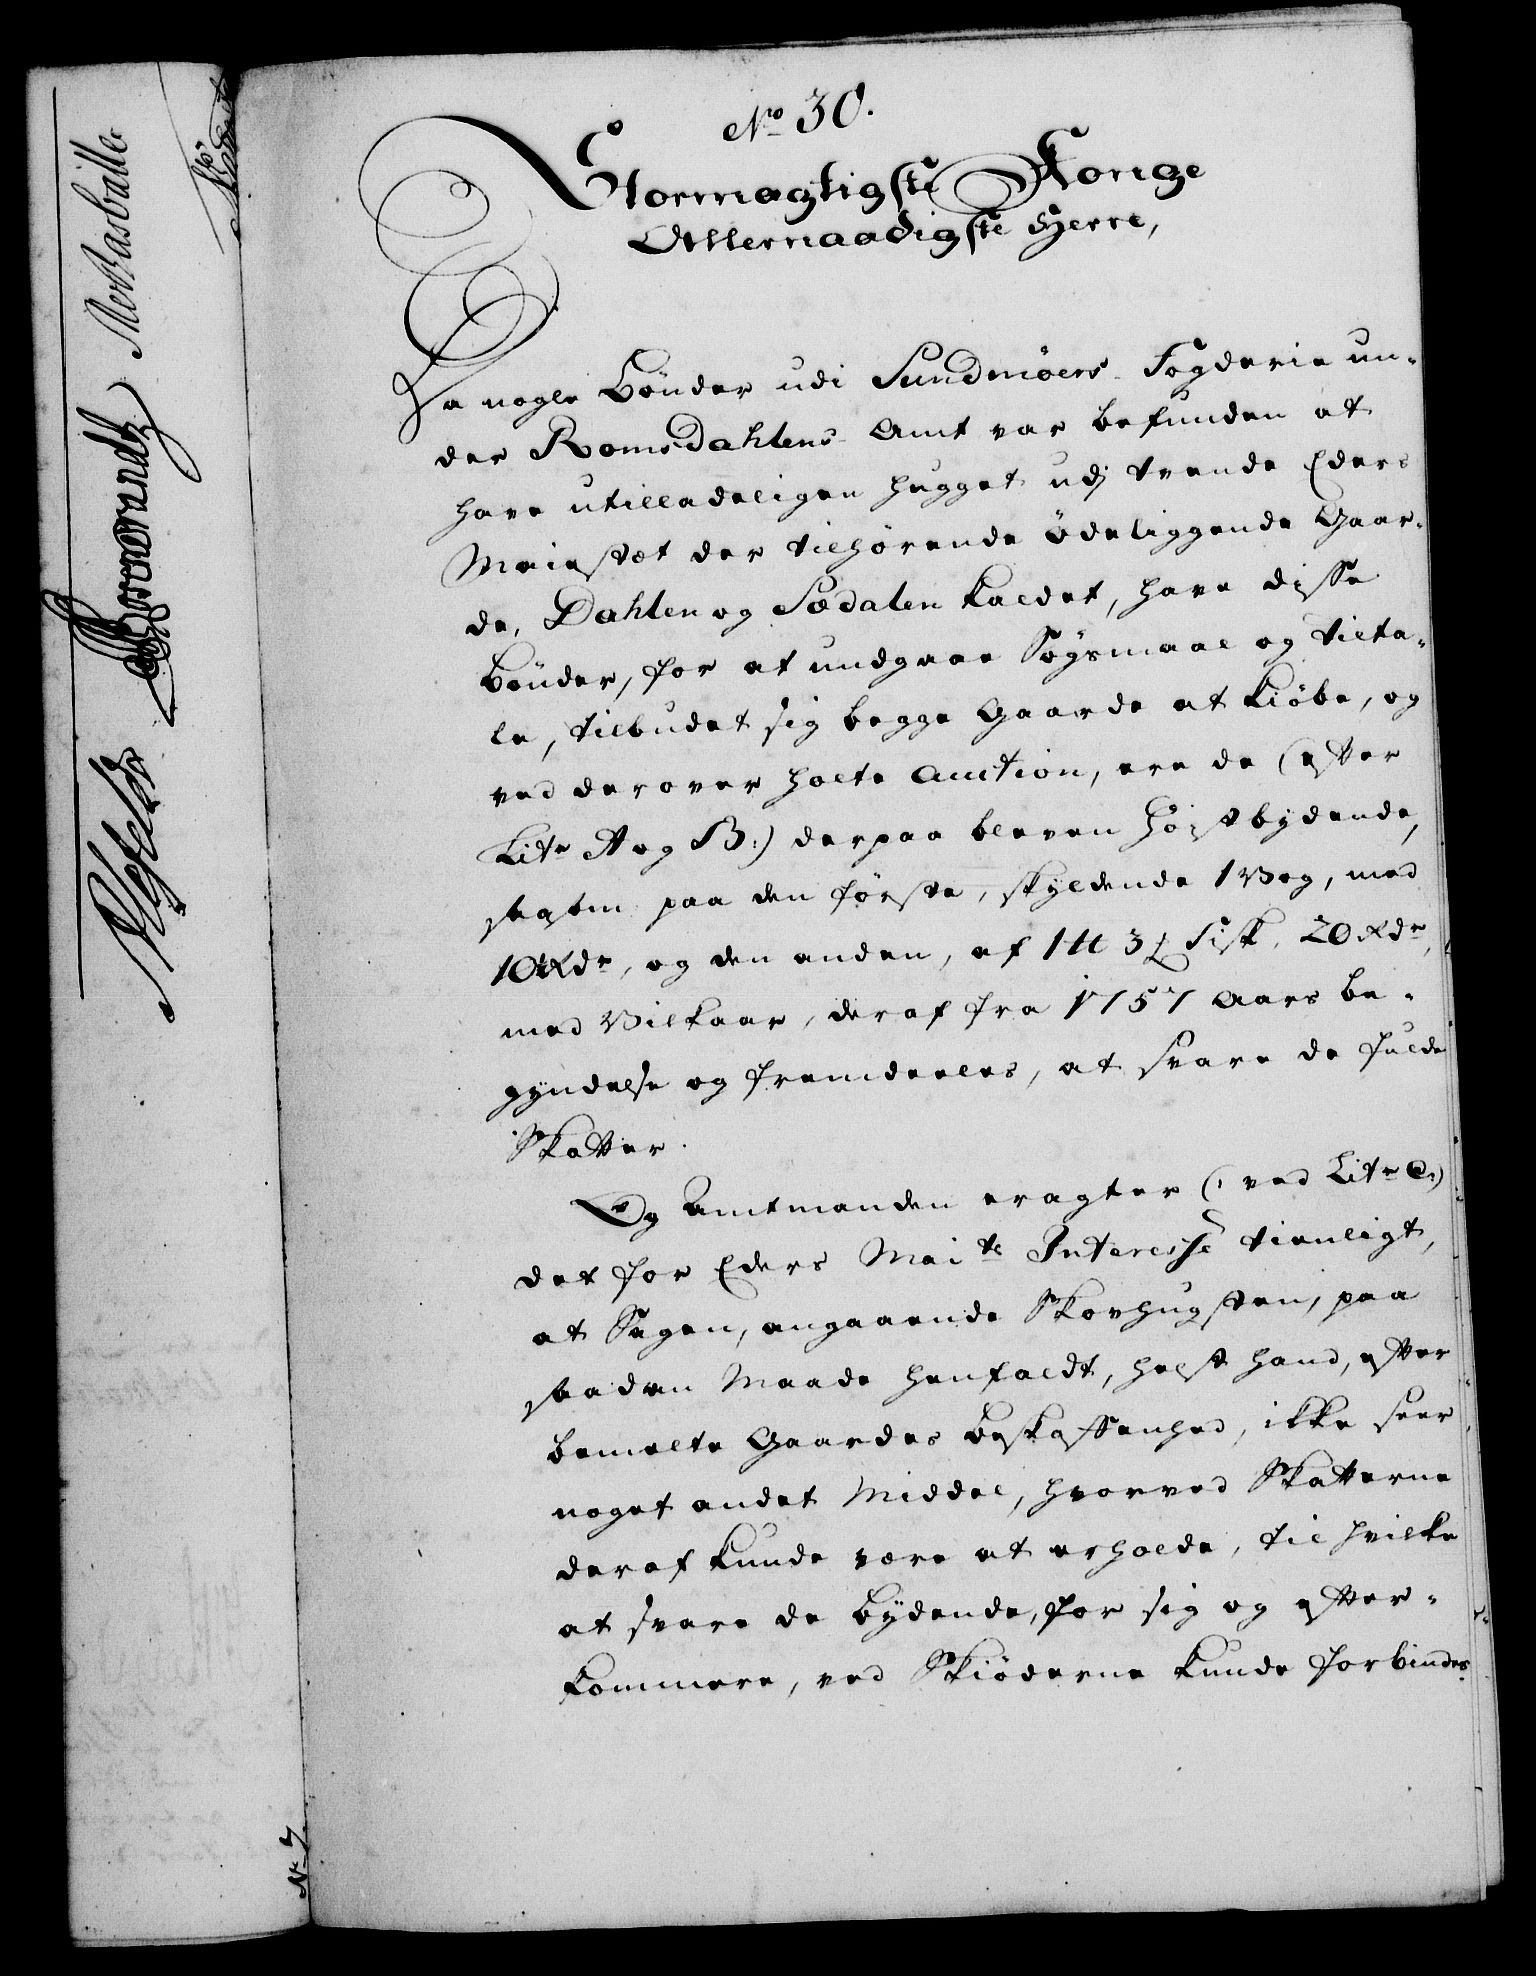 No 30.
Stormægtigste Konge
Allernaadigste Herre,
Da nogle Bönder udi Sundmöers Fogderie un-
der Romsdahlens Amt var befunden at
have utilladeligen hugget udj tvende Eders
Maiestæt der tilhörende ödeliggende Gaar-
de, Dahlen og Sædalen kaldet, have disse
Bönder, for at undgaae Sögsmaal og tilta-
le, tilbudet sig begge Gaarde at kiöbe, og
ved derover holte Auction, ere de (efter
Litr A og B:) derpaa bleven Höjstbydende,
saasom paa den förste, skyldende 1 Vog, med
10 Rdr, og den anden, af 1 tt 3 ƒ Fisk, 20 Rdr,
med Vilkaar, deraf fra 1757 Aars be-
gyndelse og fremdeeles, at svare de fulde
Skatter.
Og Amtmanden eragter (: ved Litr C:)
det for Eders Maits Interesse tienligt,
at Sagen, angaaende Skovhugsten, paa
saadan Maade henfaldt, helst hand, efter
bemelte Gaardes Beskaffenhed, ikke seer
noget andet Middel, hvorved Skatterne
deraf kunde være at erholde, til hvilke
at svare de bydende, for sig og efter-
kommere, ved Skiöderne kunde forbindes.
No 7.